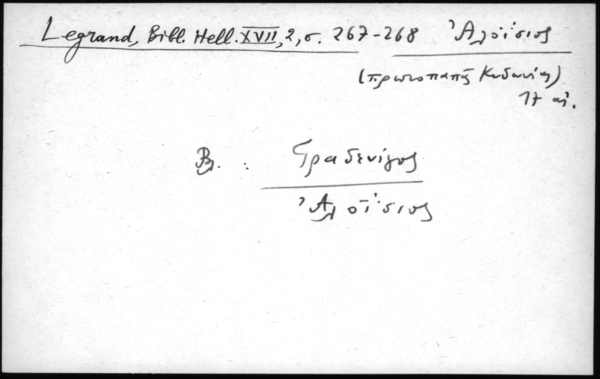 Legrand, Bibl. Hell. XVII, 2, σ. 267-268 Ἀλοΐσιος
(πρωτοπαπᾶς Κυδωνίας)
17 αἰ.
Βλ. : Γραδενίγος
Ἀλοΐσιος